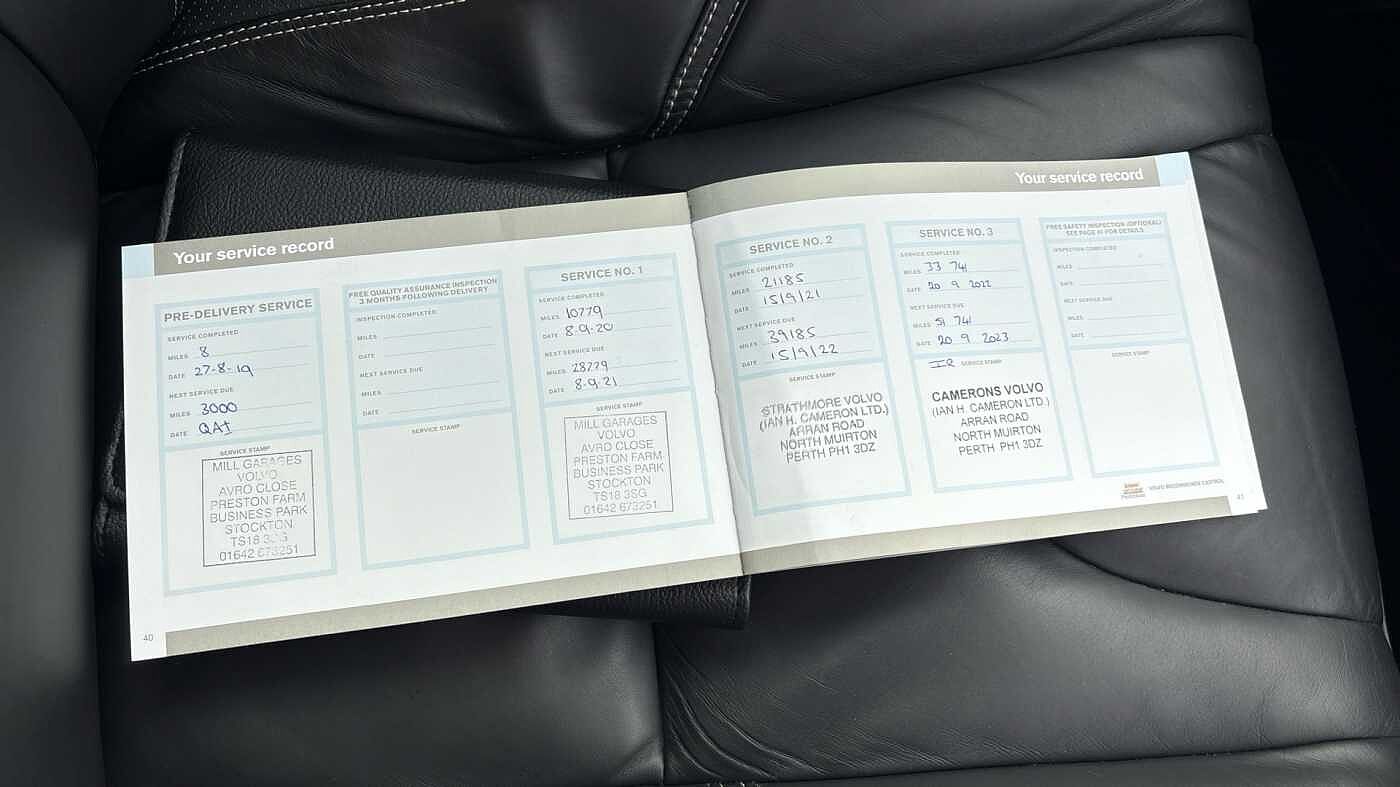 Your service record
PRE-DELIVERY SERVICE
SERVICE COMPLETED
MILES 8
DATE 27-8-19
NEXT SERVICE DUE
MILES 3000
DATE QAI
SERVICE STAMP
MILL GARAGES
VOLVO
AVRO CLOSE
PRESTON FARM
BUSINESS PARK
STOCKTON
TS18 3SG
01642 673251
FREE QUALITY ASSURANCE INSPECTION
3 MONTHS FOLLOWING DELIVERY
INSPECTION COMPLETED
MILES
DATE
NEXT SERVICE DUE
MILES
DATE
SERVICE STAMP
SERVICE NO. 1
SERVICE COMPLETED
MILES 10779
DATE 8-9-20
NEXT SERVICE DUE
MILES 28779
DATE 8-9-21
SERVICE STAMP
MILL GARAGES
VOLVO
AVRO CLOSE
PRESTON FARM
BUSINESS PARK
STOCKTON
TS18 3SG
01642 673251
40
Your service record
SERVICE NO. 2
SERVICE COMPLETED
MILES 21185
DATE 15/9/21
NEXT SERVICE DUE
MILES 39185
DATE 15/9/22
SERVICE STAMP
STRATHMORE VOLVO
(IAN H. CAMERON LTD.)
ARRAN ROAD
NORTH MUIRTON
PERTH PH1 3DZ
SERVICE NO. 3
SERVICE COMPLETED
MILES 33 741
DATE 20 9 2022
NEXT SERVICE DUE
MILES 51 741
DATE 20 9 2023
SERVICE STAMP
CAMERONS VOLVO
(IAN H. CAMERON LTD.)
ARRAN ROAD
NORTH MUIRTON
PERTH PH1 3DZ
FREE SAFETY INSPECTION (OPTIONAL)
SEE PAGE 61 FOR DETAILS
INSPECTION COMPLETED
MILES
DATE
NEXT SERVICE DUE
MILES
DATE
SERVICE STAMP
VOLVO RECOMMENDS CASTROL
41